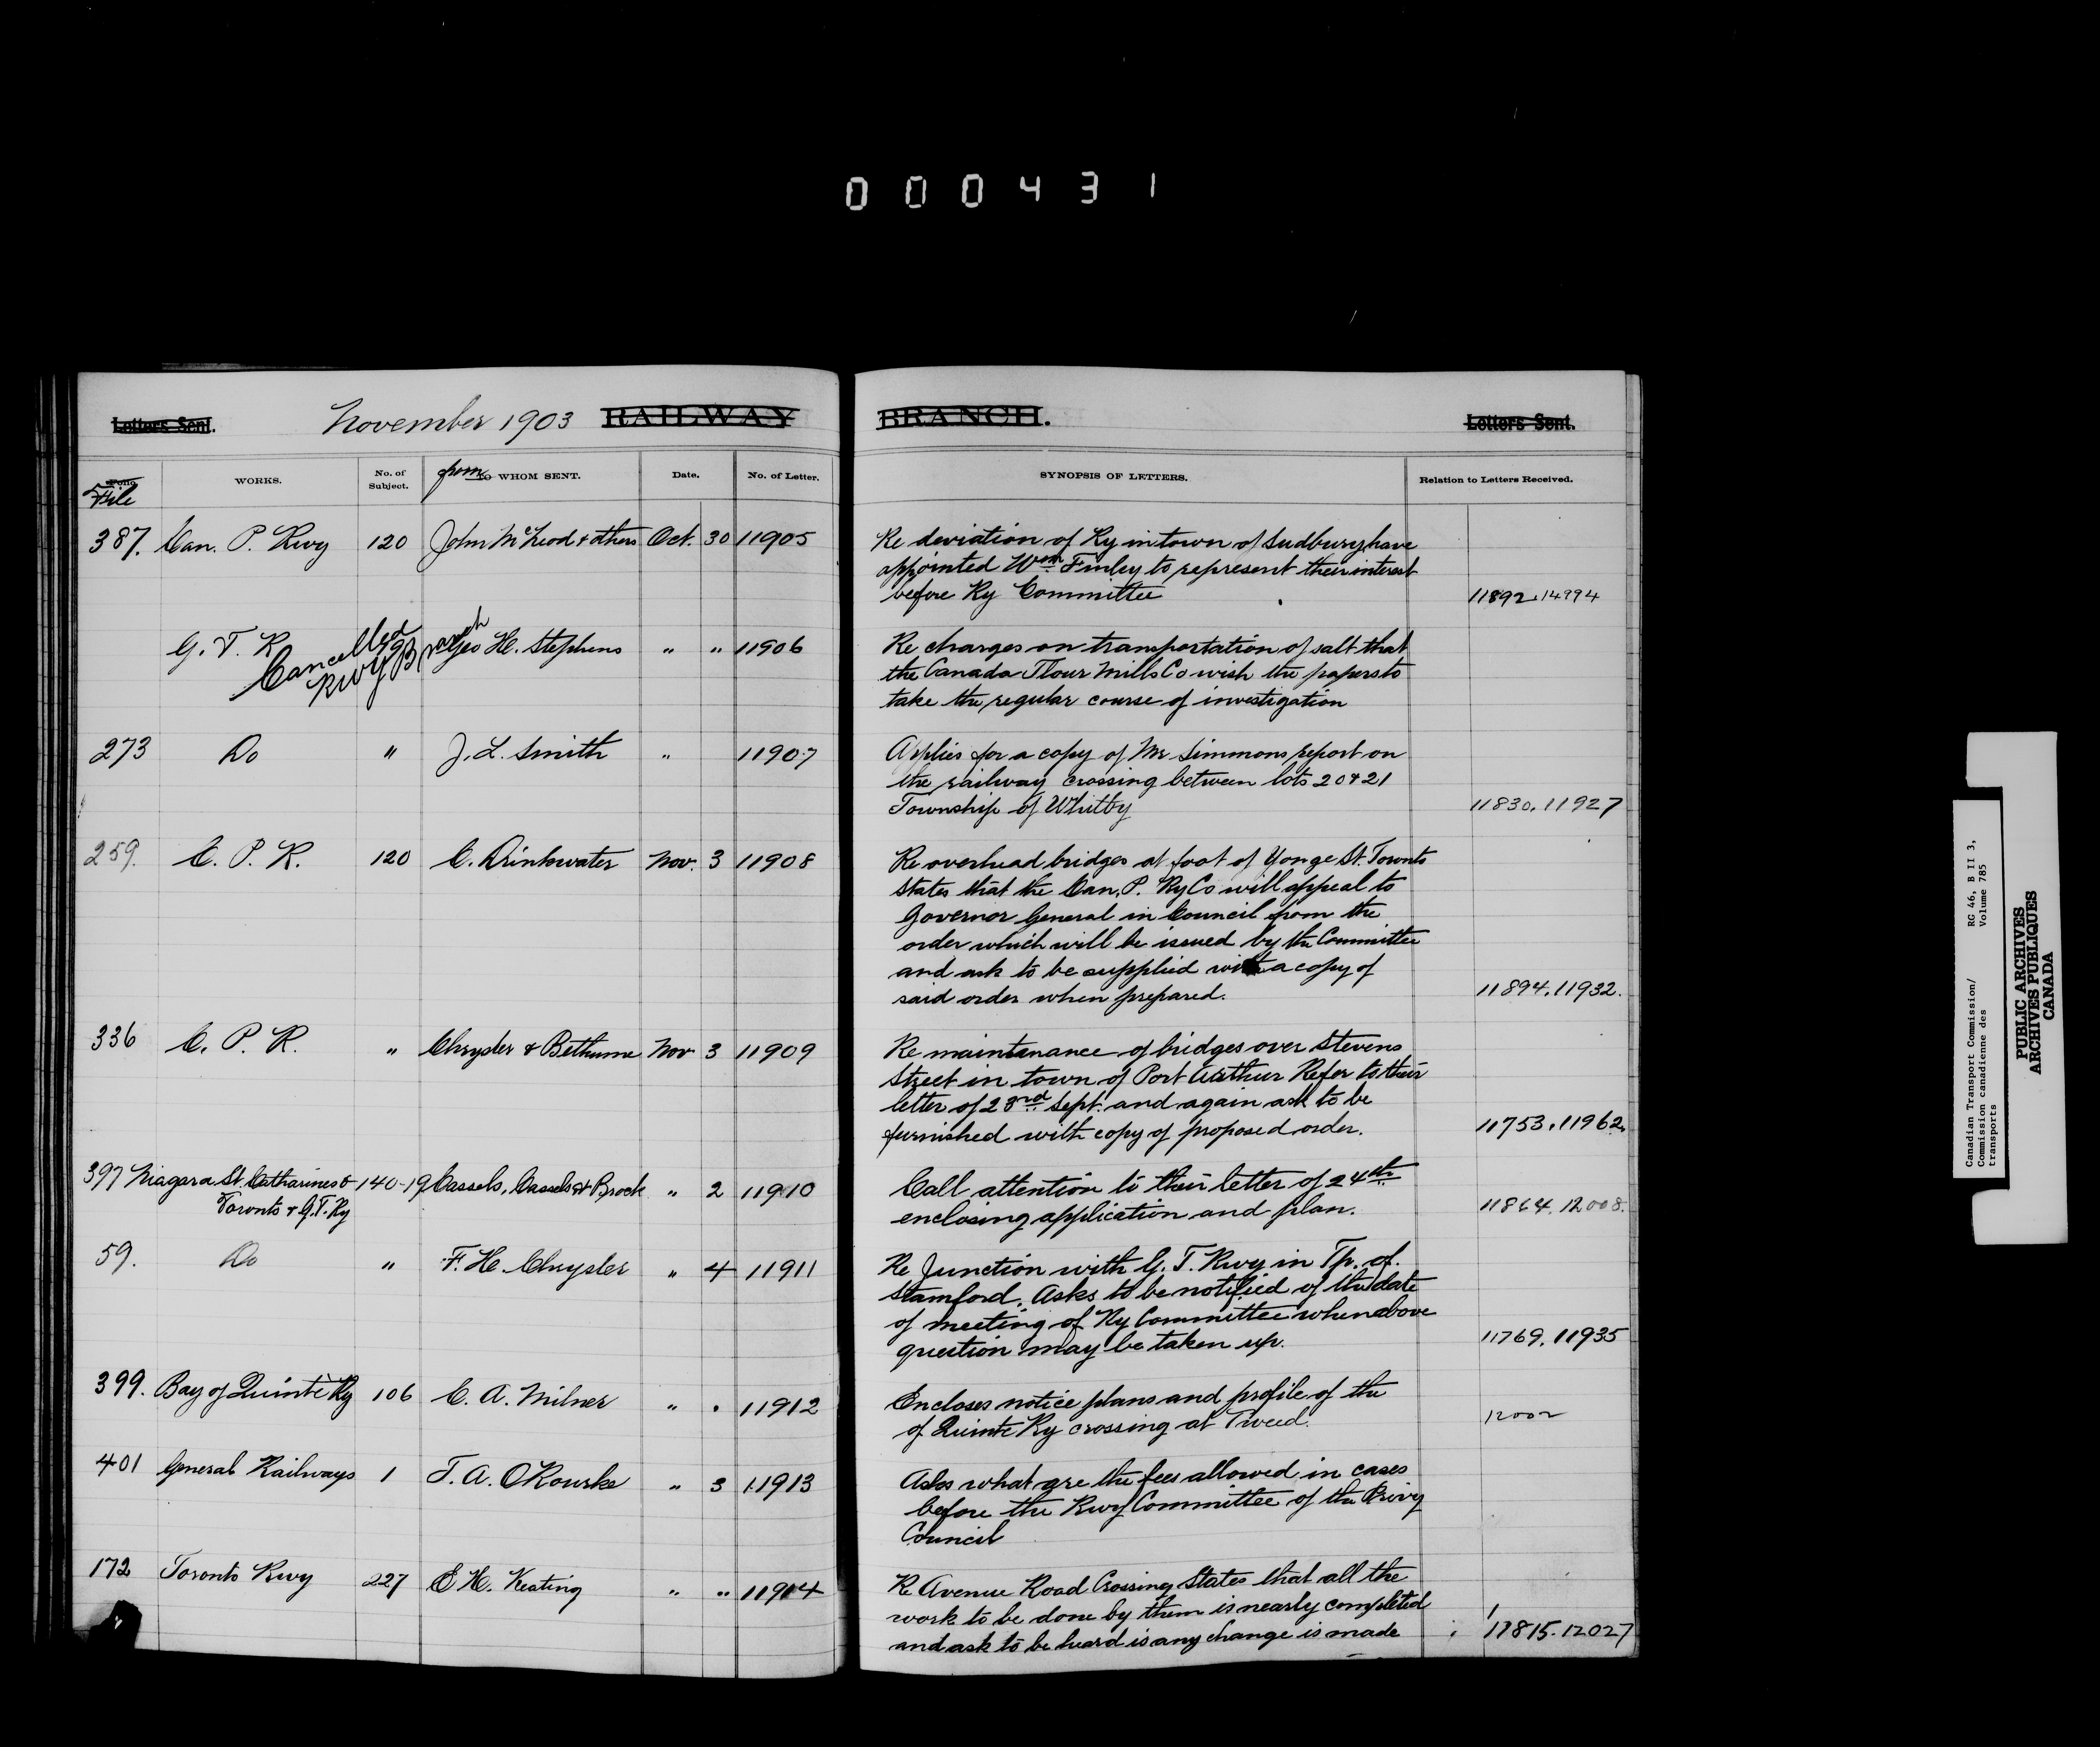 000431
Letters Sent. November 1903 RAILWAY BRANCH. Letters Sent.
Folio File WORKS. No. of Subject. from To WHOM SENT. Date. No. of Letter. SYNOPSIS OF LETTERS. Relation to Letters Received.
387. Can. P. Rwy 120 John McLeod & others Oct. 30 11905 Re deviation of Ry in town of Sudbury have
appointed Wm Finley to represent their interest
before Ry Committee 11892.14994
G. T. R Geo H. Stephens " " 11906 Re charges on transportation of salt that
Cancelled
Rwy Branch
the Canada Flour Mills Co wish the papers to
take the regular course of investigation
273 Do " J. L. Smith " 11907 Applies for a copy of Mr Simmons report on
the railway crossing between lots 20 & 21
Township of Whitby 11830.11927
259. C. P. R. 120 C. Drinkwater Nov. 3 11908 Re overhead bridges at foot of Yonge St. Toronto
states that the Can. P. Ry Co will appeal to
Governor General in Council from the
order which will be issued by the Committee
and ask to be supplied with a copy of
said order when prepared. 11894.11932.
336 C. P. R. " Chrysler & Bethune Nov 3 11909 Re maintanance of bridges over Stevens
Street in town of Port Arthur Refer to their
letter of 23rd Sept. and again ask to be
furnished with copy of proposed order. 11753.11962.
397 Niagara St. Catharines & 140-19 Cassels, Cassels & Brock " 2 11910 Call attention to their letter of 24th
Toronto & G.T. Ry enclosing application and plan. 11864.12008.
59. Do " F. H. Chrysler " 4 11911 Re Junction with G. T. Rwy in Tp. of
Stamford. Asks to be notified of the date
of meeting of Ry Committee when above
question may be taken up. 11769.11935
399. Bay of Quinté Ry 106 C. A. Milner " . 11912 Encloses notice plans and profile of the
of Quinte Ry crossing at Tweed. 12002
401 General Railways 1 T. A. O'Rourke " 3 11913 Asks what are the fees allowed in cases
before the Rwy Committee of the Privy
Council
172 Toronto Rwy 227 E H. Keating " " 11914 Re Avenue Road Crossing States that all the
work to be done by them is nearly completed
and ask to be heard is any change is made 11815.12027
Canadian Transport Commission/ RG 46, B II 3,
Commission canadienne des Volume 785
transports
PUBLIC ARCHIVES
ARCHIVES PUBLIQUES
CANADA